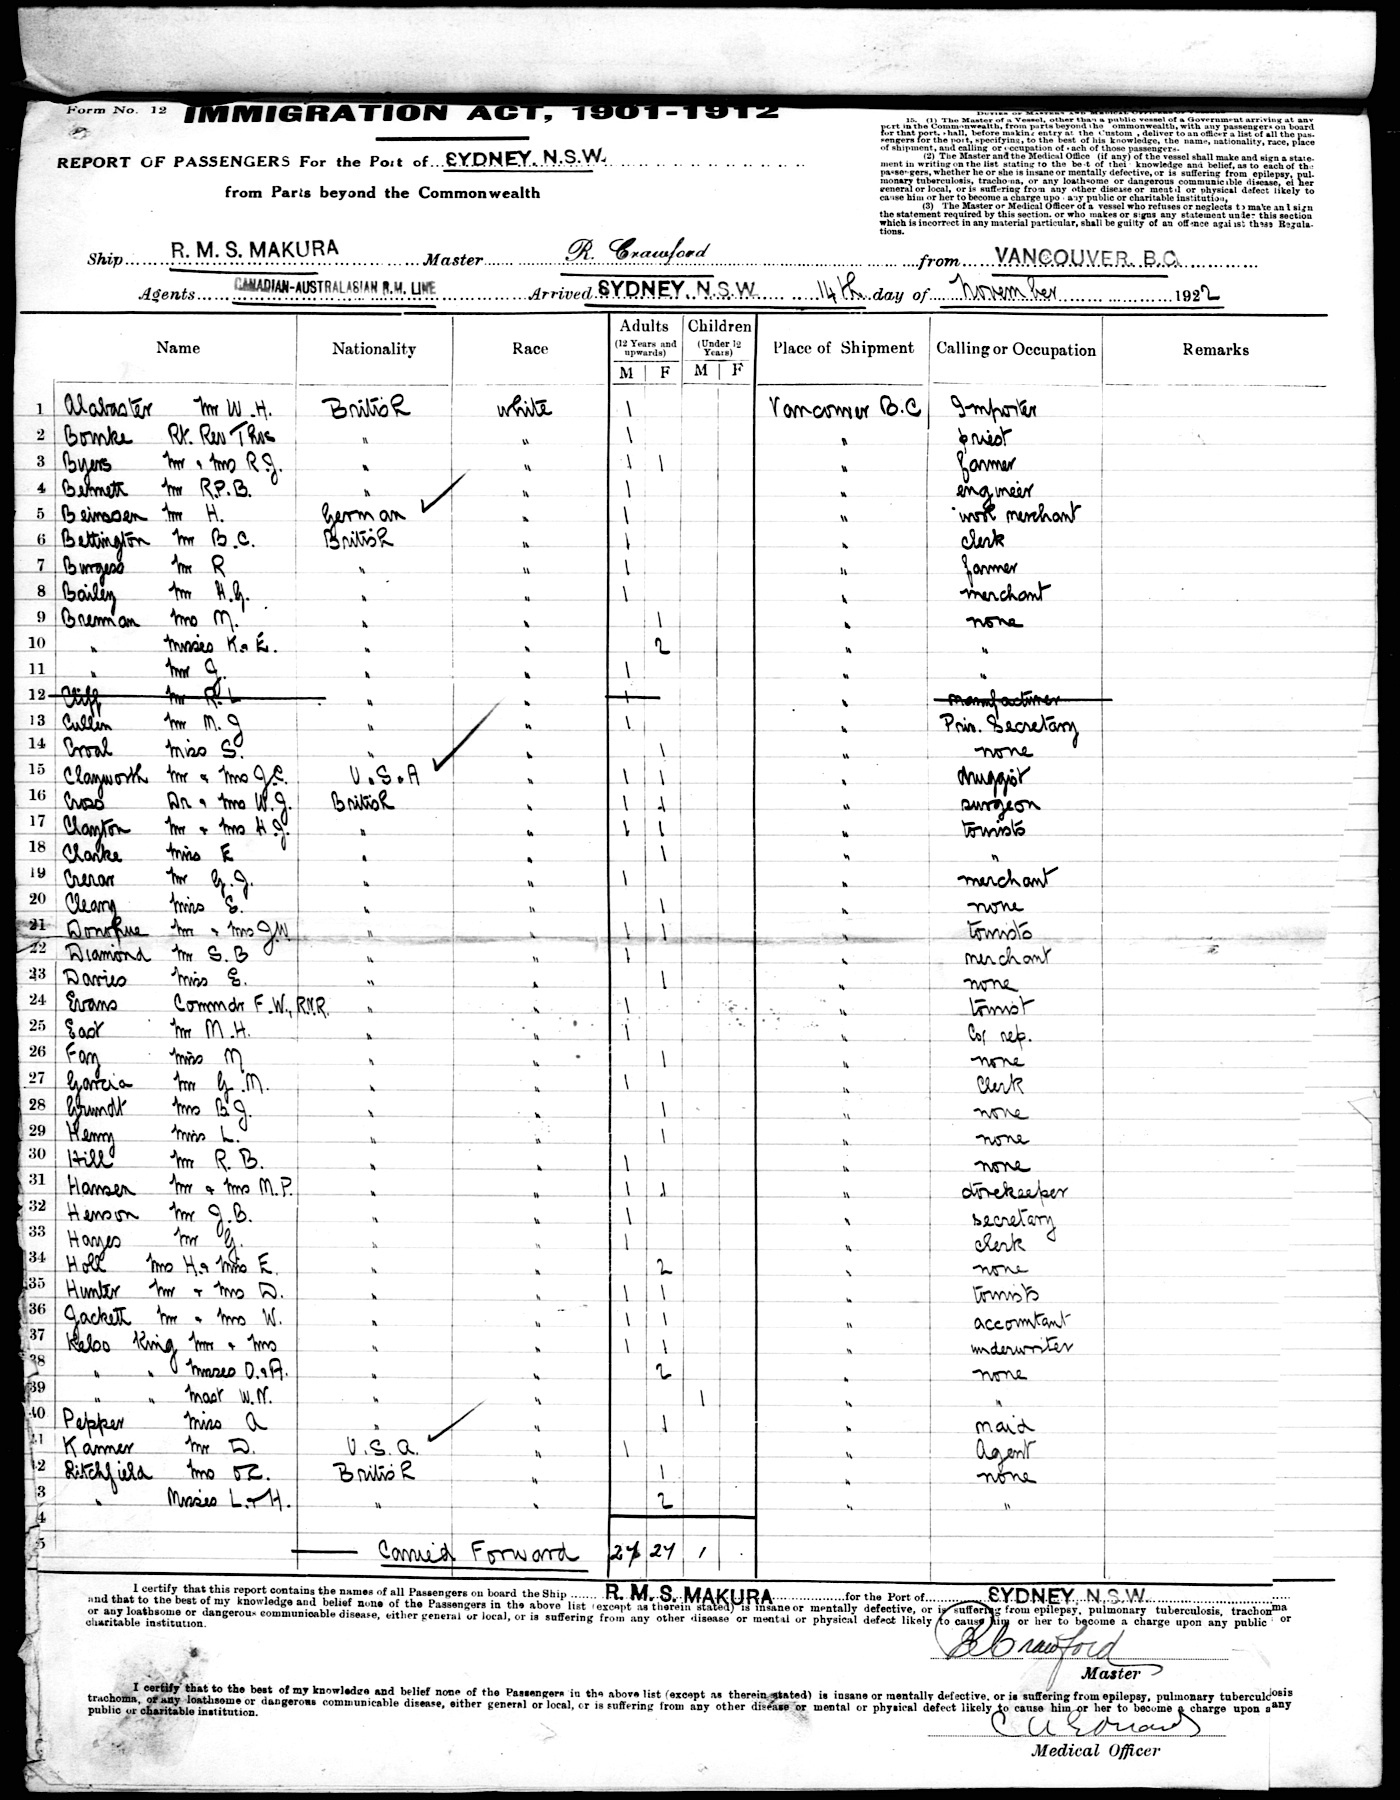 Form No. 12 IMMIGRATION ACT, 1901-1912
REPORT OF PASSENGERS For the Port of SYDNEY. N.S.W.
from Parts beyond the Commonwealth
15. (1) The Master of a Vessel, other than a public vessel of a Government arriving at any
port in the Commonwealth, from parts beyond the ommonwealth, with any passengers on board
for that port, shall, before making entry at the Custom , deliver to an officer a list of all the pas-
sengers for the port, specifying, to the best of his knowledge, the name, nationality, race, place
of shipment, and calling or occupation of each of those passengers.
(2) The Master and the Medical Office (if any) of the vessel shall make and sign a state-
ment in writing on the list stating to the best of their knowledge and belief, as to each of the
passengers, whether he or she is insane or mentally defective, or is suffering from epilepsy, pul-
monary tuberculosis, trachoma, or any loathsome or dangerous communicable disease, either
general or local, or is suffering from any other disease or mental or physical defect likely to
cause him or her to become a charge upon any public or charitable institution,
(3) The Master or Medical Officer of a vessel who refuses or neglects to make and sign
the statement required by this section, or who makes or signs any statement under this section
which is incorrect in any material particular, shall be guilty of an offence against these Regula-
tions.
Ship R. M. S. MAKURA Master R. Crawford from VANCOUVER. B.C.
Agents CANADIAN-AUSTRALASIAN R.M. LINE Arrived SYDNEY, N.S.W. 14th day of November 1922
Name Nationality Race Adults (12 Years and upwards) M F Children (Under 12 Years) M F Place of Shipment Calling or Occupation Remarks
1 Alabaster Mr W.H. British white 1 Vancouver B.C Importer
2 Bomke Rt. Rev Thos " " 1 " priest
3 Byers Mr & Mrs R.J. " " 1 1 " farmer
4 Bennett Mr R.P.B. " " 1 " engineer
5 Beinssen Mr H. German " 1 " wool merchant
6 Bettington Mr B.C. British " 1 " clerk
7 Burgess Mr R " " 1 " farmer
8 Bailey Mr H.G. " " 1 " merchant
9 Brennan Mrs M. " " 1 " none
10 " Misses K & E. " " 2 " "
11 " Mr J. " " 1 " "
12 Cliff Mr R.L " " 1 " manufacturer
13 Cullen Mr M.J " " 1 " Priv. Secretary
14 Croal Miss S. " " 1 " none
15 Clayworth Mr & Mrs J.C. U.S.A " 1 1 " druggist
16 Cross Dr & Mrs W.J. British " 1 1 " surgeon
17 Clayton Mr & Mrs H.J. " " 1 1 " tourists
18 Clarke Miss E " " 1 " "
19 Crerar Mr G.J. " " 1 " merchant
20 Cleary Miss E. " " 1 " none
21 Donohue Mr & Mrs J.W " " 1 1 " tourists
22 Diamond Mr S.B " " 1 " merchant
23 Davies Miss E. " " 1 " none
24 Evans Commdr F.W., R.N.R. " " 1 " tourist
25 East Mr M.H. " " 1 " Co/ rep.
26 Fay Miss M " " 1 " none
27 Garcia Mr G.M. " " 1 " Clerk
28 Grundt Mrs B.J. " " 1 " none
29 Henry Miss L. " " 1 " none
30 Hill Mr R.B. " " 1 " none
31 Hansen Mr & Mrs M.P. " " 1 1 " storekeeper
32 Henson Mr J.B. " " 1 " secretary
33 Hayes Mr G. " " 1 " clerk
34 Holt Mrs H. & Miss E. " " 2 " none
35 Hunter Mr & Mrs D. " " 1 1 " tourists
36 Jackett Mr & Mrs W. " " 1 1 " accountant
37 Kelso King Mr & Mrs " " 1 1 " underwriter
38 " " Misses O. & A. " " 2 " none
39 " " Mast W.N. " " 1 " "
40 Pepper Miss A " " 1 " maid
41 Kanner Mr D. U.S.A. " 1 " Agent
2 Litchfield Mrs British " 1 " none
3 " Misses L. & H. " " 2 " "
4
5 Carried Forward 27 1
I certify that this report contains the names of all Passengers on board the Ship R. M. S. MAKURA for the Port of SYDNEY. N.S.W.
and that to the best of my knowledge and belief none of the Passengers in the above list (except as therein stated) is insane or mentally defective, or is suffering from epilepsy, pulmonary tuberculosis, trachoma
or any loathsome or dangerous communicable disease, either general or local, or is suffering from any other disease or mental or physical defect likely to cause him or her to become a charge upon any public or
charitable institution.
R Crawford
Master
I certify that to the best of my knowledge and belief none of the Passengers in the above list (except as therein stated) is insane or mentally defective, or is suffering from epilepsy, pulmonary tuberculosis
trachoma, or any loathsome or dangerous communicable disease, either general or local, or is suffering from any other disease or mental or physical defect likely to cause him or her to become a charge upon any
public or charitable institution.
Medical Officer